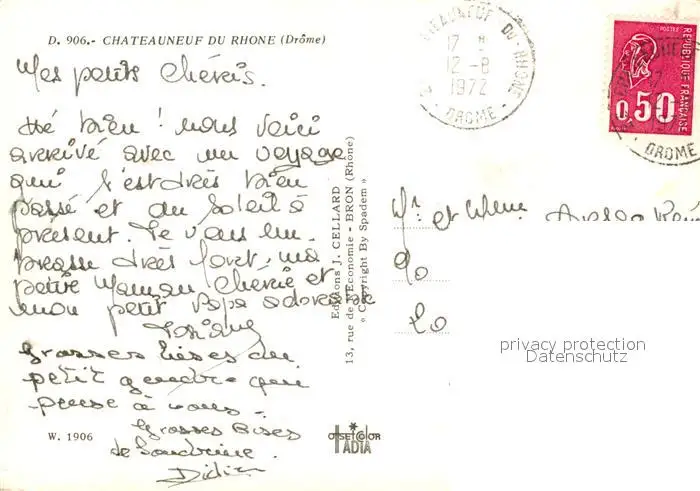 D. 906.- CHATEAUNEUF DU RHONE (Drôme)
Mes petits Chéris.
Hé bien ! nous voici
arrivé avec un voyage
qui s'est très bien
passé et du soleil à
présent. Je vous em-
brasse très fort, ma
petite Maman Chérie et
mon petit Papa adorable
Grosses bises du
petit gendre qui
pense à vous.
Grosses Bises
de Sandrine.
Didier
W. 1906
Editions J. CELLARD
13, rue de l'Economie - BRON (Rhône)
« Copyright By Spadem »
OFFSETCOLOR
IADIA
CHATEAUNEUF-DU-RHONE
17 H
12-8
1972
DROME
0,50
REPUBLIQUE FRANÇAISE
DROME
Mr et Mme
privacy protection
Datenschutz